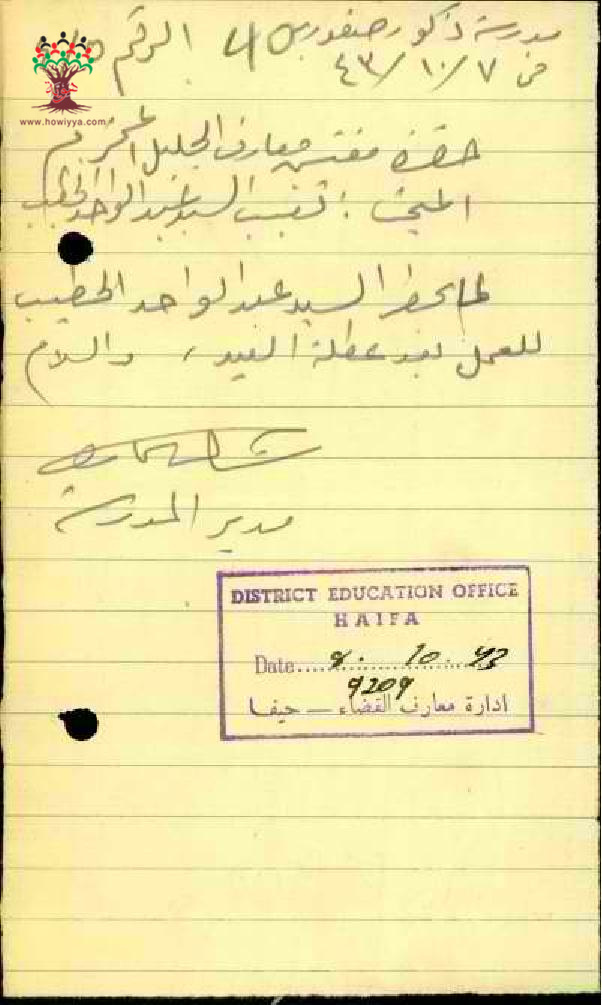 مدرسة ذكور صفورية الرقم
في ٧/١٠/٤٣
www.howiyya.com
حضرة مفتش معارف الجليل المحترم
المبحث : تغيب السيد عبد الواحد الخطيب
لما يحضر السيد عبد الواحد الخطيب
للعمل بعد عطلة العيد ، والسلام
مدير المدرسة
DISTRICT EDUCATION OFFICE
HAIFA
Date 9. 10. 43
9209
ادارة معارف القضاء — حيفا